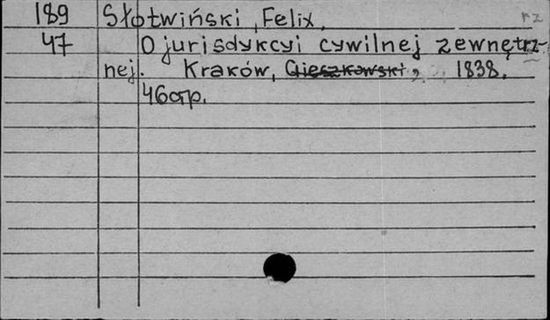 189 Słotwiński, Felix. rz
47 O jurisdykcyi cywilnej zewnętrz-
nej. Kraków, Cieszkowski, 1838.
46 str.